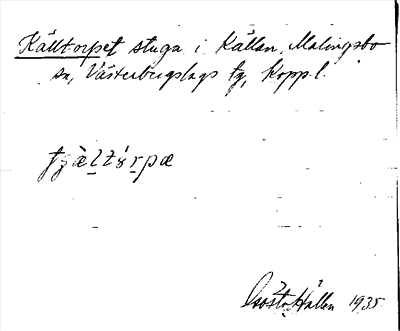 Källtorpet stuga i Källan, Malingsbo
sn, Västerbergslags tg, Kopp. l.
Gösta Hållen 1935